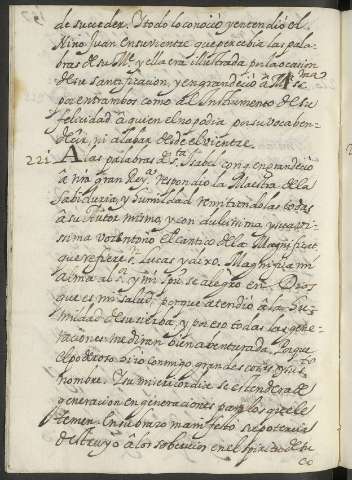 de suceder. Y todo lo conocio y entendio el
Niño Juan en su vientre que percebia las pala-
bras de su Me. y ella era illustrada por la ocasion
de su santificacion, y engrandecio a Maria SSma.
por entrambos como al Instrumento de su
felicidad a quien el no podia por su voca ben-
decir, ni alabar desde el vientre.
221 A las palabras de Sta. Isabel con q engrandecio
a nra gran Reyna respondio la Maestra de la
Sabiduria y humildad remitiendolas todas
a su Autor mismo, y con dulcissima y suavis-
sima voz entono el cantico de la Magnificat
que refiere S. Lucas y dixo. Magnifica mi
alma al Sr. y mi spu se alegro en Dios
que es mi salud, porque atendio a la hu-
mildad de su sierva, y por eso todas las gene-
raciones me diran bienaventurada. Porque
el poderoso hizo conmigo grandes cosas y su Sto.
nombre. Y su misericordia se estendera de
generacion en generaciones para los que le
temen. En su brazo manifesto su potencia
destruyo a los soberuios en el spiritu de su
co